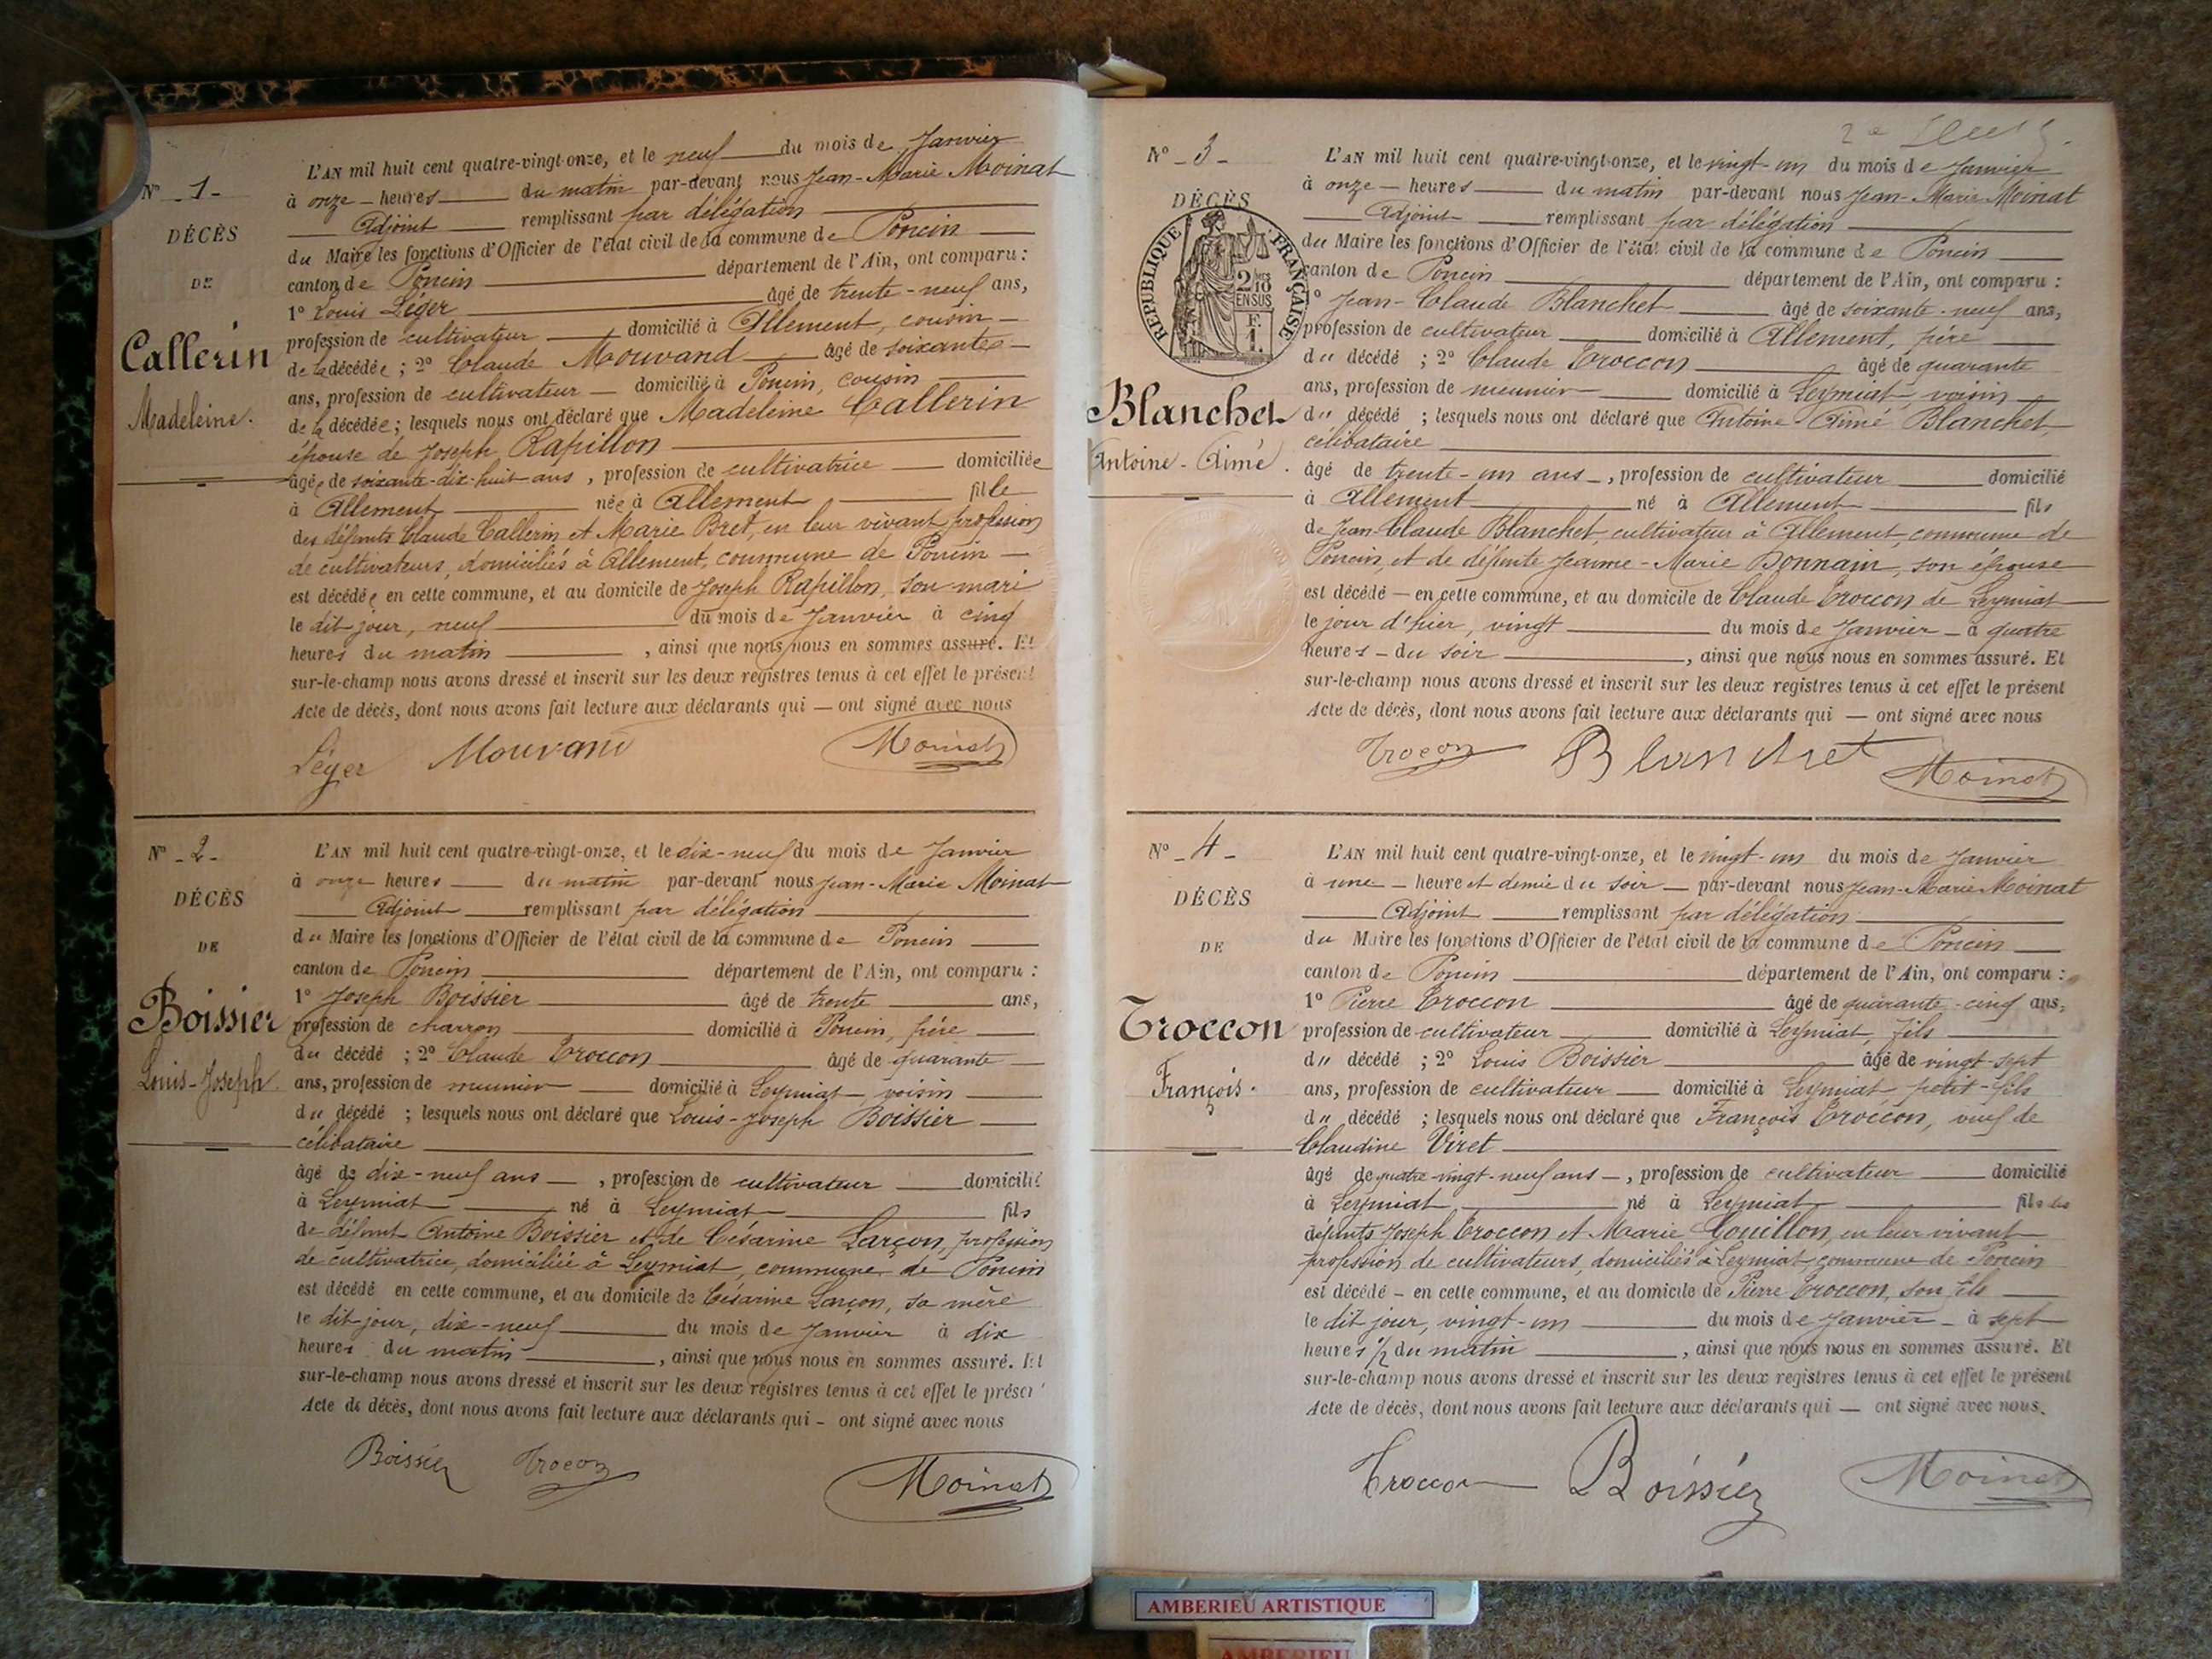 N° - 1 -
DÉCÈS
DE
Callerin
Madeleine.
L'AN mil huit cent quatre-vingt-onze, et le neuf du mois de Janvier
à onze - heures du matin par-devant nous Jean-Marie Moinat
Adjoint remplissant par délégation
du Maire les fonctions d'Officier de l'état civil de la commune de Poncin
canton de Poncin département de l'Ain, ont comparu :
1° Louis Léger âgé de trente-neuf ans,
profession de cultivateur domicilié à Allement, cousin
de la décédée ; 2° Claude Mouvand âgé de soixante
ans, profession de cultivateur domicilié à Poncin, cousin
de la décédée ; lesquels nous ont déclaré que Madeleine Callerin
épouse de Joseph Rapillon
âgée de soixante-dix-huit ans , profession de cultivatrice domiciliée
à Allement née à Allement fille
des défunts Claude Callerin et Marie Bret, en leur vivant profession
de cultivateurs, domiciliés à Allement, commune de Poncin
est décédée en cette commune, et au domicile de Joseph Rapillon, son mari
le dit jour, neuf du mois de Janvier à cinq
heures du matin , ainsi que nous nous en sommes assuré. Et
sur-le-champ nous avons dressé et inscrit sur les deux registres tenus à cet effet le présent
Acte de décès, dont nous avons fait lecture aux déclarants qui — ont signé avec nous
Léger Mouvand Moinat
N° - 2 -
DÉCÈS
DE
Boissier
Louis-Joseph
L'AN mil huit cent quatre-vingt-onze, et le dix-neuf du mois de Janvier
à onze heures du matin par-devant nous Jean-Marie Moinat
Adjoint remplissant par délégation
du Maire les fonctions d'Officier de l'état civil de la commune de Poncin
canton de Poncin département de l'Ain, ont comparu :
1° Joseph Boissier âgé de trente ans,
profession de charron domicilié à Poncin, frère
du décédé ; 2° Claude Troccon âgé de quarante
ans, profession de meunier domicilié à Leymiat, voisin
du décédé ; lesquels nous ont déclaré que Louis-Joseph Boissier
célibataire
âgé de dix-neuf ans — , profession de cultivateur domicilié
à Leymiat né à Leymiat fils
de défunt Antoine Boissier et de Césarine Larçon, profession
de cultivatrice, domiciliée à Leymiat, commune de Poncin
est décédé en cette commune, et au domicile de Césarine Larçon, sa mère
le dit jour, dix-neuf du mois de Janvier à dix
heures du matin , ainsi que nous nous en sommes assuré. Et
sur-le-champ nous avons dressé et inscrit sur les deux registres tenus à cet effet le présen
Acte de décès, dont nous avons fait lecture aux déclarants qui - ont signé avec nous
Boissier Trocon Moinat
N° - 3 -
DÉCÈS
RÉPUBLIQUE FRANÇAISE
2/10 EN SUS
F. 1.
Blanchet
Antoine-Aimé.
L'AN mil huit cent quatre-vingt-onze, et le vingt-un du mois de Janvier
à onze — heures du matin par-devant nous Jean-Marie Moinat
Adjoint remplissant par délégation
du Maire les fonctions d'Officier de l'état civil de la commune de Poncin
canton de Poncin département de l'Ain, ont comparu :
1° Jean-Claude Blanchet âgé de soixante-neuf ans,
profession de cultivateur domicilié à Allement, père
du décédé ; 2° Claude Troccon âgé de quarante
ans, profession de meunier domicilié à Leymiat, voisin
du décédé ; lesquels nous ont déclaré que Antoine Aimé Blanchet,
célibataire
âgé de trente-un ans - , profession de cultivateur domicilié
à Allement né à Allement fils
de Jean-Claude Blanchet, cultivateur à Allement, commune de
Poncin, et de défunte Jeanne-Marie Bonnain, son épouse
est décédé — en cette commune, et au domicile de Claude Troccon de Leymiat
le jour d'hier, vingt du mois de Janvier - à quatre
heures - du soir , ainsi que nous nous en sommes assuré. Et
sur-le-champ nous avons dressé et inscrit sur les deux registres tenus à cet effet le présent
Acte de décès, dont nous avons fait lecture aux déclarants qui — ont signé avec nous
Trocon Blanchet Moinat
N° - 4 -
DÉCÈS
DE
Troccon
François.
L'AN mil huit cent quatre-vingt-onze, et le vingt-un du mois de Janvier
à une - heure et demie du soir — par-devant nous Jean-Marie Moinat
Adjoint remplissant par délégation
du Maire les fonctions d'Officier de l'état civil de la commune de Poncin
canton de Poncin département de l'Ain, ont comparu :
1° Pierre Troccon âgé de quarante-cinq ans,
profession de cultivateur domicilié à Leymiat, fils
du décédé ; 2° Louis Boissier âgé de vingt-sept
ans, profession de cultivateur domicilié à Leymiat petit-fils
du décédé ; lesquels nous ont déclaré que François Troccon, veuf de
Claudine Viret
âgé de quatre-vingt-neuf ans — , profession de cultivateur domicilié
à Leymiat né à Leymiat fils des
défunts Joseph Troccon et Marie Gouillon, en leur vivant
profession de cultivateurs, domiciliés à Leymiat commune de Poncin
est décédé - en cette commune, et au domicile de Pierre Troccon, son fils
le dit jour, vingt-un du mois de Janvier - à sept
heures 1/2 du matin , ainsi que nous nous en sommes assuré. Et
sur-le-champ nous avons dressé et inscrit sur les deux registres tenus à cet effet le présent
Acte de décès, dont nous avons fait lecture aux déclarants qui — ont signé avec nous.
Troccon Boissier Moinat
AMBERIEU ARTISTIQUE
AMBERIEU